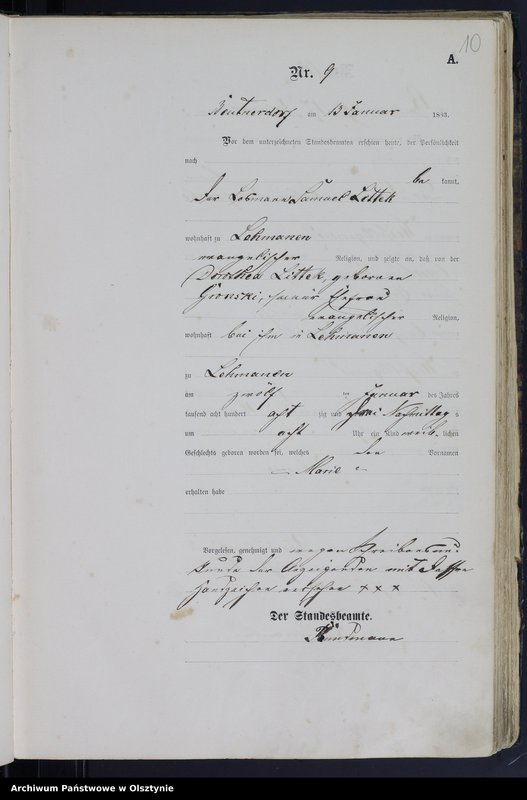 10
A.
Nr. 9
am 13 Januar 1883.
Vor dem unterzeichneten Standesbeamten erschien heute, der Persönlichkeit
nach
be kannt,
der Losmann Samuel Littek
wohnhaft zu Lehmanen
evangelischer Religion, und zeigte an, daß von der
Dorothea Littek, geborenen
seiner Ehefrau
evangelischer Religion,
wohnhaft bei ihm in Lehmanen
zu Lehmanen
am zwölf ten Januar des Jahres
tausend acht hundert acht zig und drei Nachmittag s
um acht Uhr ein Kind weib- lichen
Geschlechts geboren worden sei, welches den Vornamen
Marie
erhalten habe
Vorgelesen, genehmigt und wegen Schreibensun-
kunde des Anzeigenden mit dessen
Handzeichen versehen + + +
Der Standesbeamte.
Archiwum Państwowe w Olsztynie